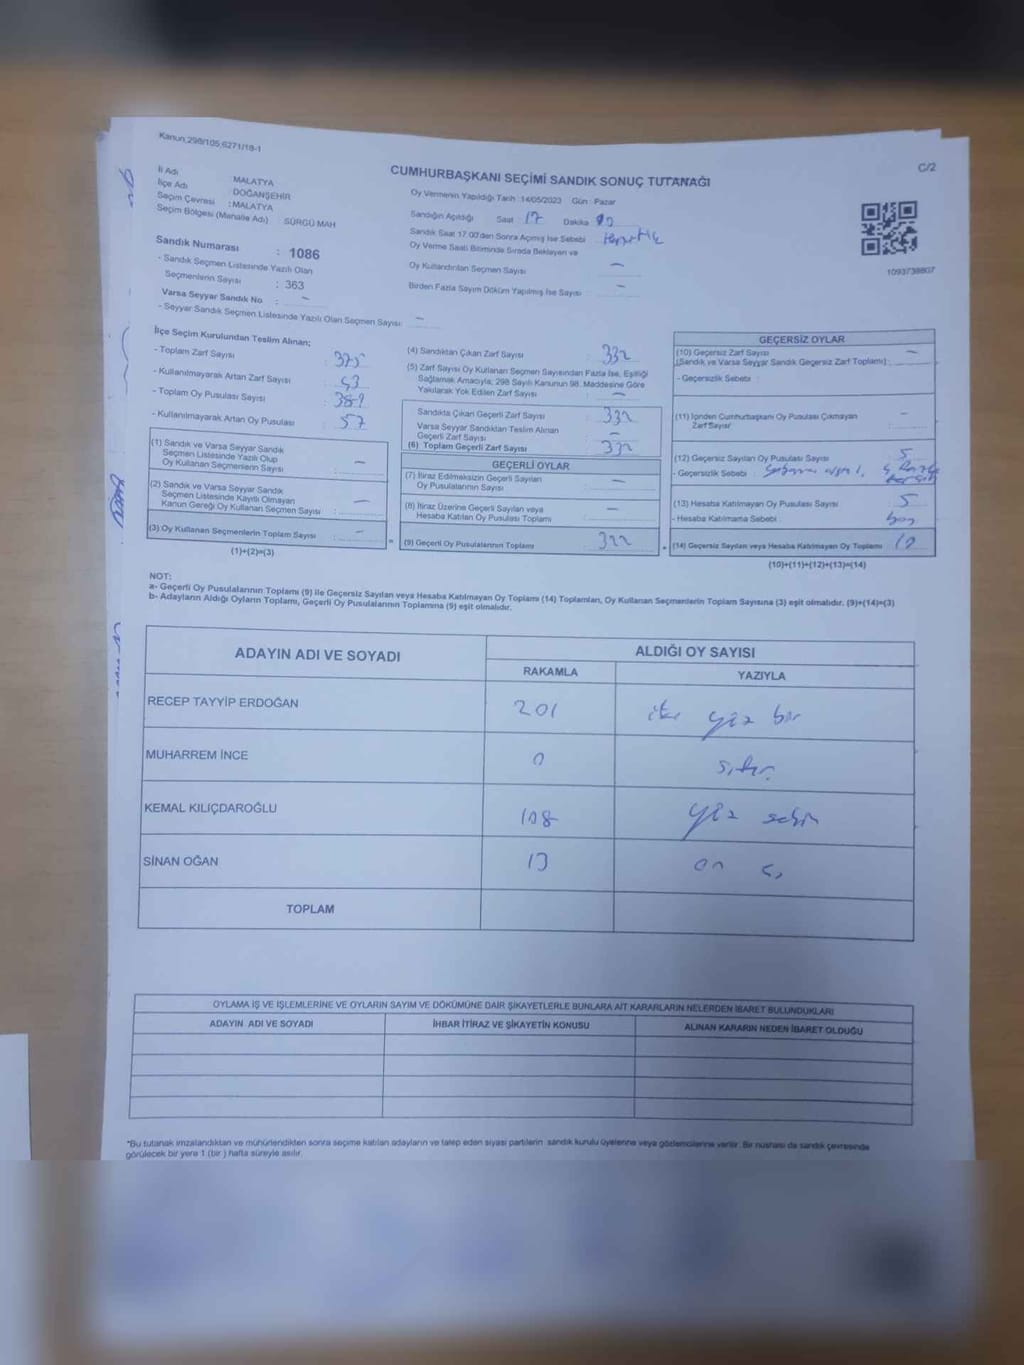 Kanun;298/105;6271/18-1
C/2
CUMHURBAŞKANI SEÇİMİ SANDIK SONUÇ TUTANAĞI
İl Adı : MALATYA
İlçe Adı : DOĞANŞEHİR
Seçim Çevresi : MALATYA
Seçim Bölgesi (Mahalle Adı) SÜRGÜ MAH
Sandık Numarası : 1086
- Sandık Seçmen Listesinde Yazılı Olan
Seçmenlerin Sayısı : 363
Varsa Seyyar Sandık No : -
- Seyyar Sandık Seçmen Listesinde Yazılı Olan Seçmen Sayısı: -
Oy Vermenin Yapıldığı Tarih :14/05/2023 Gün : Pazar
Sandığın Açıldığı Saat 17 Dakika
Sandık Saat 17:00'den Sonra Açılmış İse Sebebi
Oy Verme Saati Bitiminde Sırada Bekleyen ve
Oy Kullandırılan Seçmen Sayısı -
Birden Fazla Sayım Döküm Yapılmış İse Sayısı -
1093738807
İlçe Seçim Kurulundan Teslim Alınan;
- Toplam Zarf Sayısı : 375
- Kullanılmayarak Artan Zarf Sayısı : 43
- Toplam Oy Pusulası Sayısı : 389
- Kullanılmayarak Artan Oy Pusulası : 57
(1) Sandık ve Varsa Seyyar Sandık
Seçmen Listesinde Yazılı Olup
Oy Kullanan Seçmenlerin Sayısı : -
(2) Sandık ve Varsa Seyyar Sandık
Seçmen Listesinde Kayıtlı Olmayan
Kanun Gereği Oy Kullanan Seçmen Sayısı : -
(3) Oy Kullanan Seçmenlerin Toplam Sayısı : -
(1)+(2)=(3)
(4) Sandıktan Çıkan Zarf Sayısı : 332
(5) Zarf Sayısı Oy Kullanan Seçmen Sayısından Fazla İse, Eşitliği
Sağlamak Amacıyla; 298 Sayılı Kanunun 98. Maddesine Göre
Yakılarak Yok Edilen Zarf Sayısı : -
Sandıkta Çıkan Geçerli Zarf Sayısı : 332
Varsa Seyyar Sandıktan Teslim Alınan
Geçerli Zarf Sayısı : -
(6) Toplam Geçerli Zarf Sayısı : 332
GEÇERLİ OYLAR
(7) İtiraz Edilmeksizin Geçerli Sayılan
Oy Pusulalarının Sayısı : -
(8) İtiraz Üzerine Geçerli Sayılan veya
Hesaba Katılan Oy Pusulası Toplamı : -
(9) Geçerli Oy Pusulalarının Toplamı : 322
GEÇERSİZ OYLAR
(10) Geçersiz Zarf Sayısı -
(Sandık ve Varsa Seyyar Sandık Geçersiz Zarf Toplamı) :
- Geçersizlik Sebebi :
(11) İçinden Cumhurbaşkanı Oy Pusulası Çıkmayan
Zarf Sayısı : -
(12) Geçersiz Sayılan Oy Pusulası Sayısı : 5
- Geçersizlik Sebebi :
(13) Hesaba Katılmayan Oy Pusulası Sayısı : 5
- Hesaba Katılmama Sebebi : boş
(14) Geçersiz Sayılan veya Hesaba Katılmayan Oy Toplamı : 10
(10)+(11)+(12)+(13)=(14)
NOT:
a- Geçerli Oy Pusulalarının Toplamı (9) ile Geçersiz Sayılan veya Hesaba Katılmayan Oy Toplamı (14) Toplamları, Oy Kullanan Seçmenlerin Toplam Sayısına (3) eşit olmalıdır. (9)+(14)=(3)
b- Adayların Aldığı Oyların Toplamı, Geçerli Oy Pusulalarının Toplamına (9) eşit olmalıdır.
ADAYIN ADI VE SOYADI
ALDIĞI OY SAYISI
RAKAMLA YAZIYLA
RECEP TAYYİP ERDOĞAN 201 iki yüz bir
MUHARREM İNCE 0 sıfır
KEMAL KILIÇDAROĞLU 108 yüz sekiz
SİNAN OĞAN 13 on üç
TOPLAM
OYLAMA İŞ VE İŞLEMLERİNE VE OYLARIN SAYIM VE DÖKÜMÜNE DAİR ŞİKAYETLERLE BUNLARA AİT KARARLARIN NELERDEN İBARET BULUNDUKLARI
ADAYIN ADI VE SOYADI İHBAR İTİRAZ VE ŞİKAYETİN KONUSU ALINAN KARARIN NEDEN İBARET OLDUĞU
*Bu tutanak imzalandıktan ve mühürlendikten sonra seçime katılan adayların ve talep eden siyasi partilerin sandık kurulu üyelerine veya gözlemcilerine verilir. Bir nüshası da sandık çevresinde
görülecek bir yere 1 (bir ) hafta süreyle asılır.